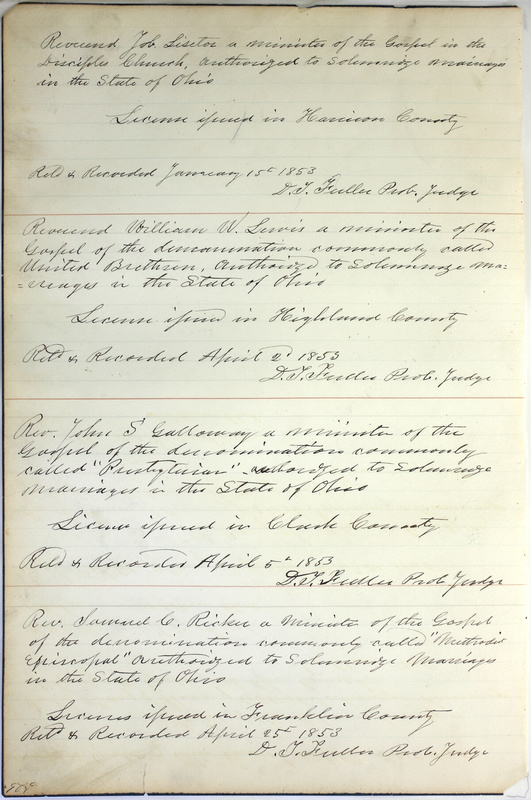 Reverend Job Lisetor a minister of the Gospel in the
Disciples Church, authorized to Solemnize marriages
in the State of Ohio
License issued in Harrison County
Retd & Recorded January 15t 1853
D. T. Fuller Prob. Judge
Reverend William W. Lewis a minister of the
Gospel of the denomination commonly called
United Brethren, authorized to Solemnize ma=
=rreages in the State of Ohio
License issued in Highland County
Retd & Recorded April 2d 1853
D. T. Fuller Prob. Judge
Rev. John S Galloway a minister of the
Gospel of the denomination commonly
called "Presbyterian" authorized to Solemnize
marriages in the State of Ohio
License issued in Clark County
Retd & Recorded April 5t 1853
D. T. Fuller Prob Judge
Rev. Samuel C. Ricker a Minister of the Gospel
of the denomination commonly called "Methodist
Episcopal" authorized to Solemnize Marriages
in the State of Ohio
Licenses issued in Franklin County
Retd & Recorded April 25t 1853
D. T. Fuller Prob. Judge